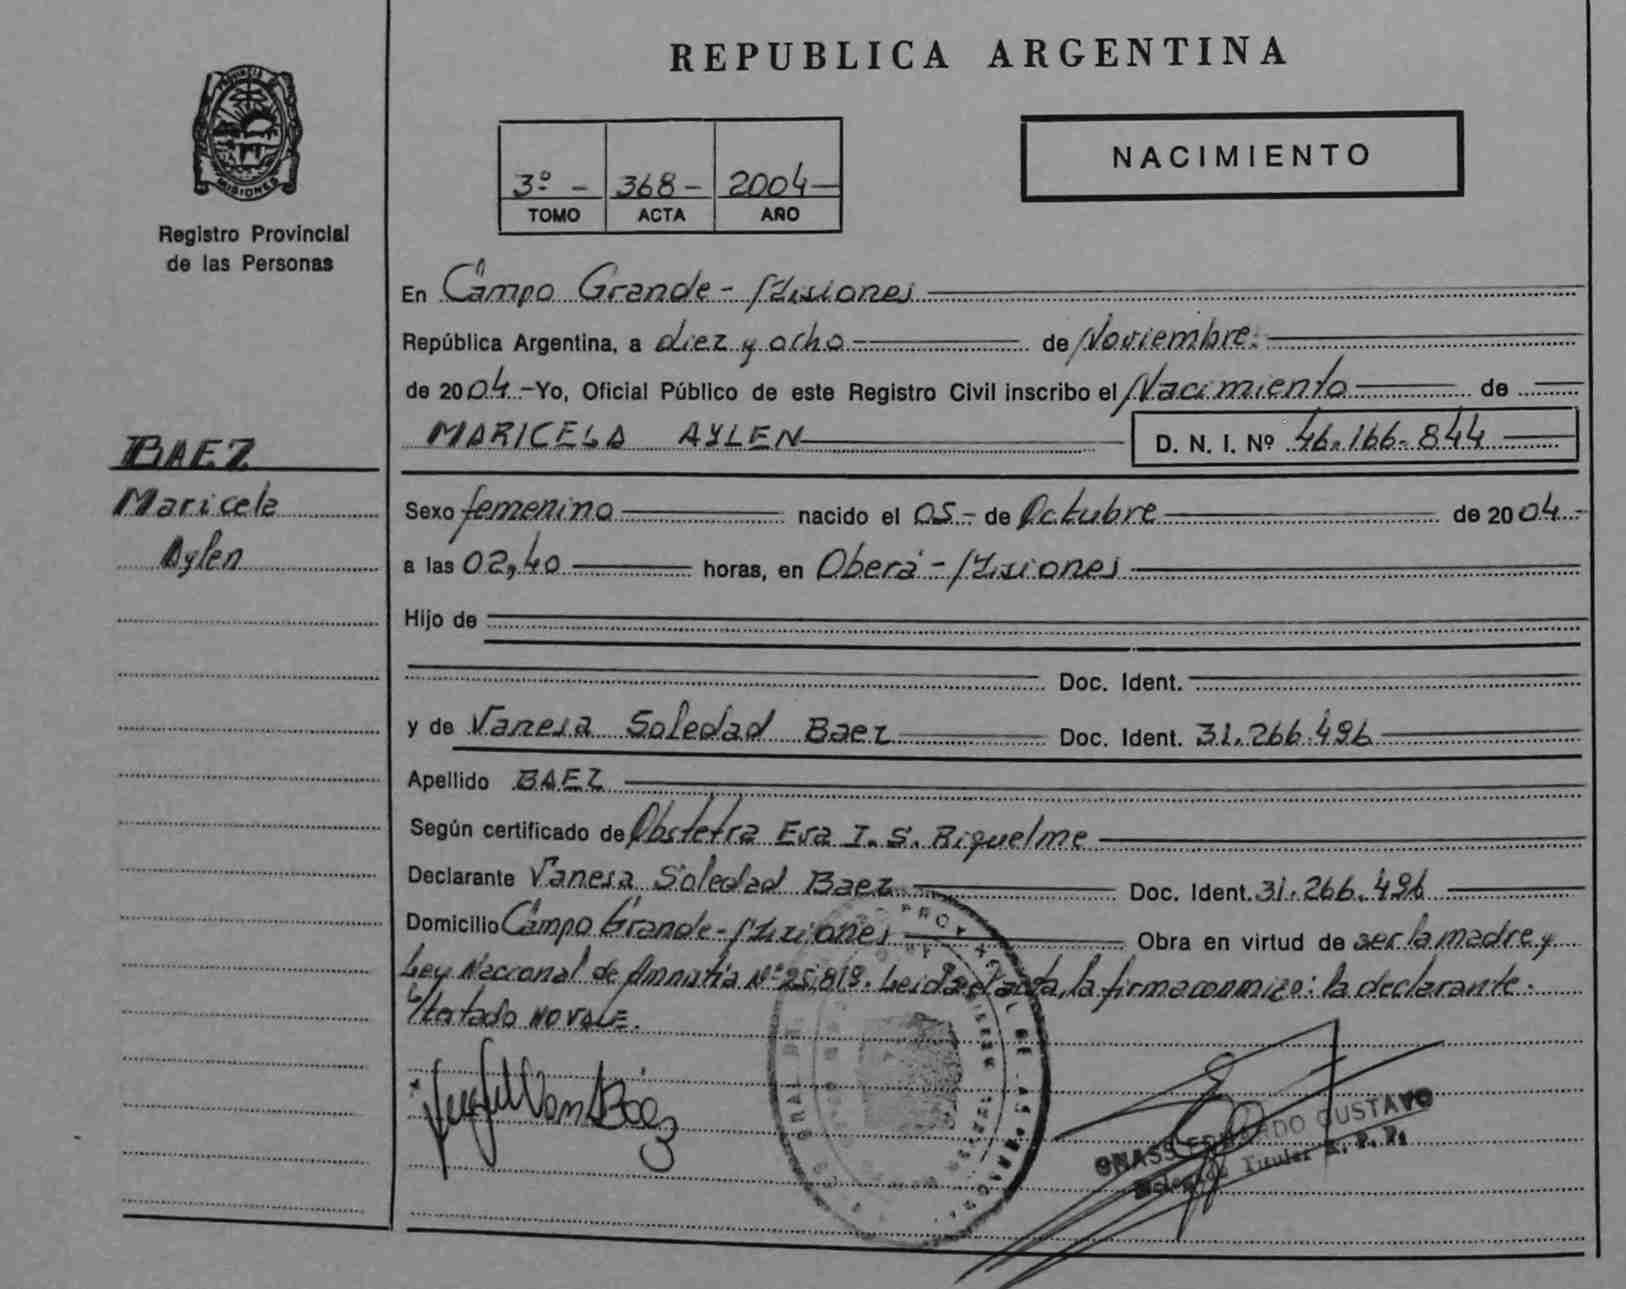 REPUBLICA ARGENTINA
PROVINCIA DE
MISIONES
Registro Provincial
de las Personas
3º - 368- 2004-
TOMO ACTA AÑO
NACIMIENTO
En Campo Grande - Misiones
República Argentina, a diez y ocho de Noviembre.
de 2004.- Yo, Oficial Público de este Registro Civil inscribo el Nacimiento de
MARICELA AYLEN D. N. I. Nº 46.166.844
BAEZ
Maricela
Aylen
Sexo femenino nacido el 05.- de Octubre de 2004.-
a las 02,40 horas, en Oberá - Misiones
Hijo de
Doc. Ident.
y de Vanesa Soledad Baez Doc. Ident. 31.266.496
Apellido BAEZ
Según certificado de Obstetra Eva I. S. Riquelme
Declarante Vanesa Soledad Baez Doc. Ident. 31.266.496
Domicilio Campo Grande - Misiones Obra en virtud de ser la madre y
Ley Nacional de Amnistía Nº 25.819. Leída el acta, la firma conmigo: la declarante.
NO VALE.
Baez
EDUARDO GUSTAVO
Titular R. P. P.